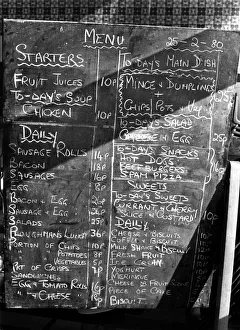 MENU
25-2-80
STARTERS
FRUIT JUICES 10p
TO-DAY'S SOUP
CHICKEN 10p
DAILY
SAUSAGE ROLLS 14p
BACON
SAUSAGES
EGG 8p
BACON & EGG 26p
SAUSAGE & EGG
SALADS
PLOUGHMANS LUNCH 36p
PORTION OF CHIPS 10p
POTATOES
VEGETABLES
PKT OF CRISPS
SANDWICHES
EGG & TOMATO ROLLS
" & CHEESE
TO-DAY'S MAIN DISH
MINCE & DUMPLINGS
+
CHIPS/POTS +
TO-DAYS SALAD
CHEESE & EGG
TO-DAYS SNACKS
HOT DOGS
BEEFBURGERS
SPAM PIZZA
SWEETS
TO-DAYS SWEETS
SLICE & CUSTARD 10p
DAILY
CHEESE & BISCUITS
COFFEE & BISCUIT
MILK SHAKE & BISCUIT
FRESH FRUIT
ICE CREAM
YOGHURT
MERINGUE
CHEESE OR FRUIT
BISCUIT